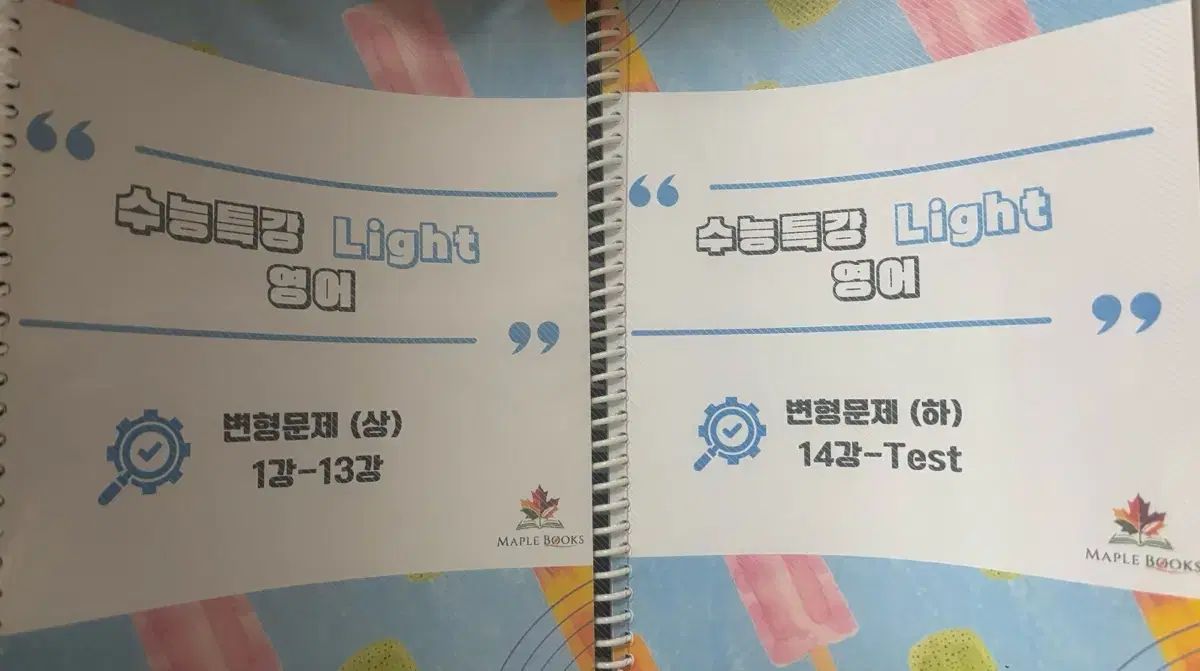 “
수능특강 Light
영어
”
변형문제 (상)
1강-13강
MAPLE BOOKS
“
수능특강 Light
영어
”
변형문제 (하)
14강-Test
MAPLE BOOKS